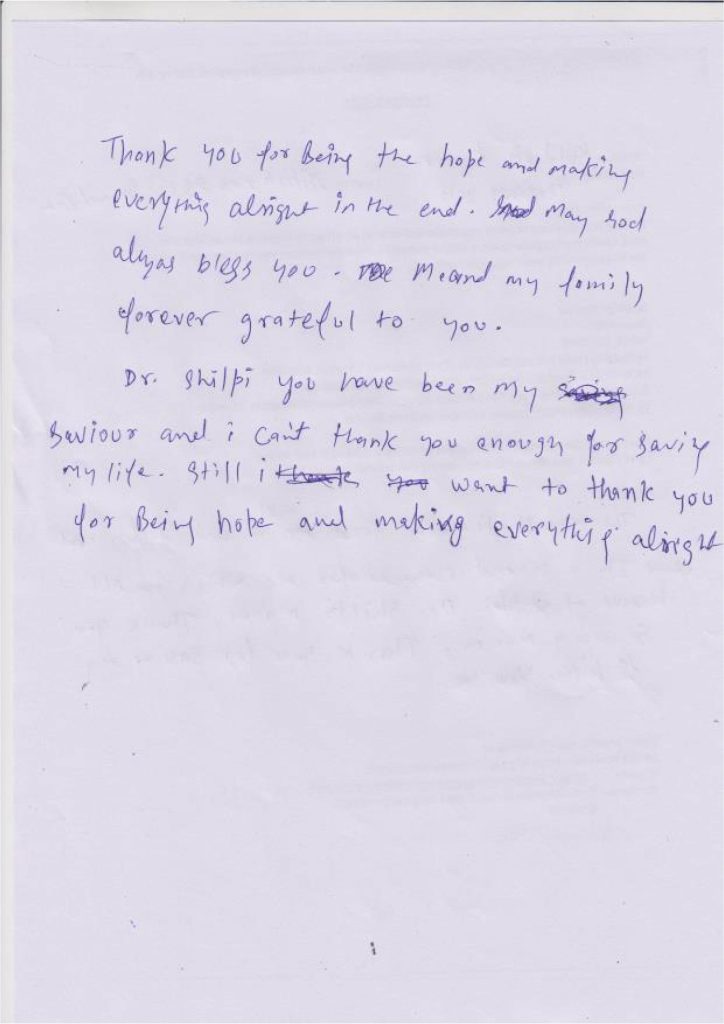 Thank you for Being the hope and making
everything alright in the end. May God
alyas bless you. Me and my family
forever grateful to you.
Dr. Shilpi you have been my
Saviour and i can't thank you enough for saving
my life. Still i thank you want to thank you
for Being hope and making everything alright